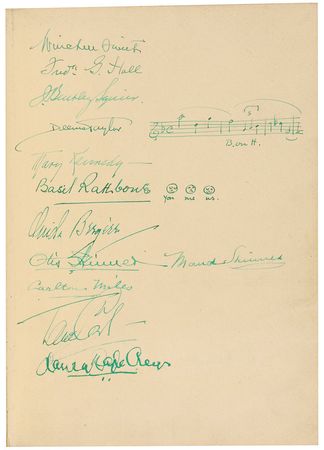 Winchell Smith
Fredk. G. Hall
J. Bentley Squier.
Deems Taylor
3
B. on H.
Mary Kennedy
Basil Rathbone
you me us.
Otis Skinner Maud Skinner
Carlton Miles
Laura Hope Crews